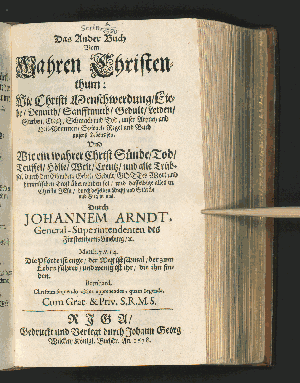 Das Ander Buch
Vom
Wahren Christen-
thum:
Wie Christi Menschwerdung/Lie-
be/Demuth/Sanfftmuth/Gedult/Leiden/
Sterben/Creutz/ Schmach und Tod/unser Artzney und
Heil-Brunnen/Spiegel/Regel und Buch
unsers Lebens sey.
Und
Wie ein wahrer Christ Sünde/Tod/
Teuffel/Hölle/Welt/Creutz/und alle Trüb-
sal durch den Glauben/Gebet/Gedult/GOTTes Wort und
himmlischen Trost überwinden sol/ und dasselbige alles in
Christo JEsu/durch desselben Krafft und Stärcke
Durch
JOHANNEM ARNDT,
General-Superintendenten des
Fürstenthums Lüneburg/&c.
Matth. 7. v. 14.
Die Pforte ist enge/ der Weg ist schmal/ der zum
Leben führet/ und wenig ist ihr/ die ihn fin-
den.
Bernhard.
Christum sequendo citius apprehendes, quam legendo.
Cum Grat. & Priv. S.R.M.S.
RIGA/
Gedruckt und Verlegt durch Johann Georg
Wilcken/Königl. Buchdr. An. 1678.